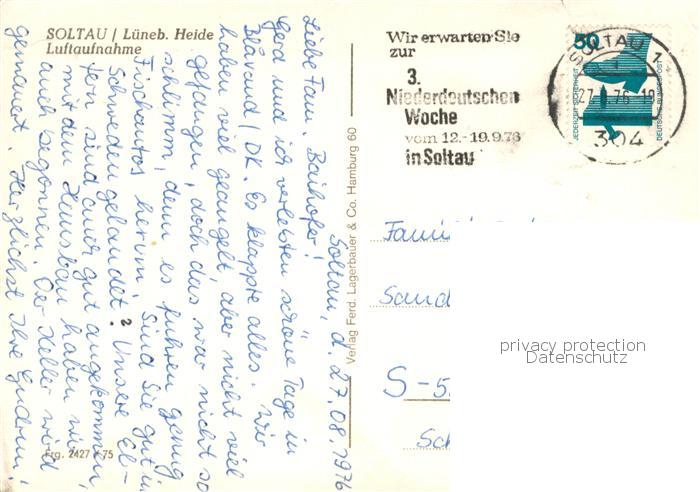 SOLTAU / Lüneb. Heide
Luftaufnahme
Soltau, d. 27.08.1976
Liebe Fam. Baihofer!
Gerd und ich verlebten schöne Tage in
Blåvand / DK. Es klappte alles. Wir
haben viel geangelt, aber nicht viel
gefangen, doch das war nicht so
schlimm, denn es fuhren genug
Fischautos herum. Sind Sie gut in
Schweden gelandet? Unsere El-
tern sind auch gut angekommen,
mit dem Hausbau haben wir
auch begonnen. Der Keller wird
gemauert. Herzlichst Ihre Gudrun!
Frg. 2427 75
Verlag Ferd. Lagerbauer & Co. Hamburg 60
Wir erwarten Sie
zur
3.
Niederdeutschen
Woche
vom 12.-19.9.76
in Soltau
50
JEDERZEIT SICHERHEIT
DEUTSCHE BUNDESPOST
SOLTAU 1
27. 76-19
304
Famil
Sand
S-5
Sch
privacy protection
Datenschutz